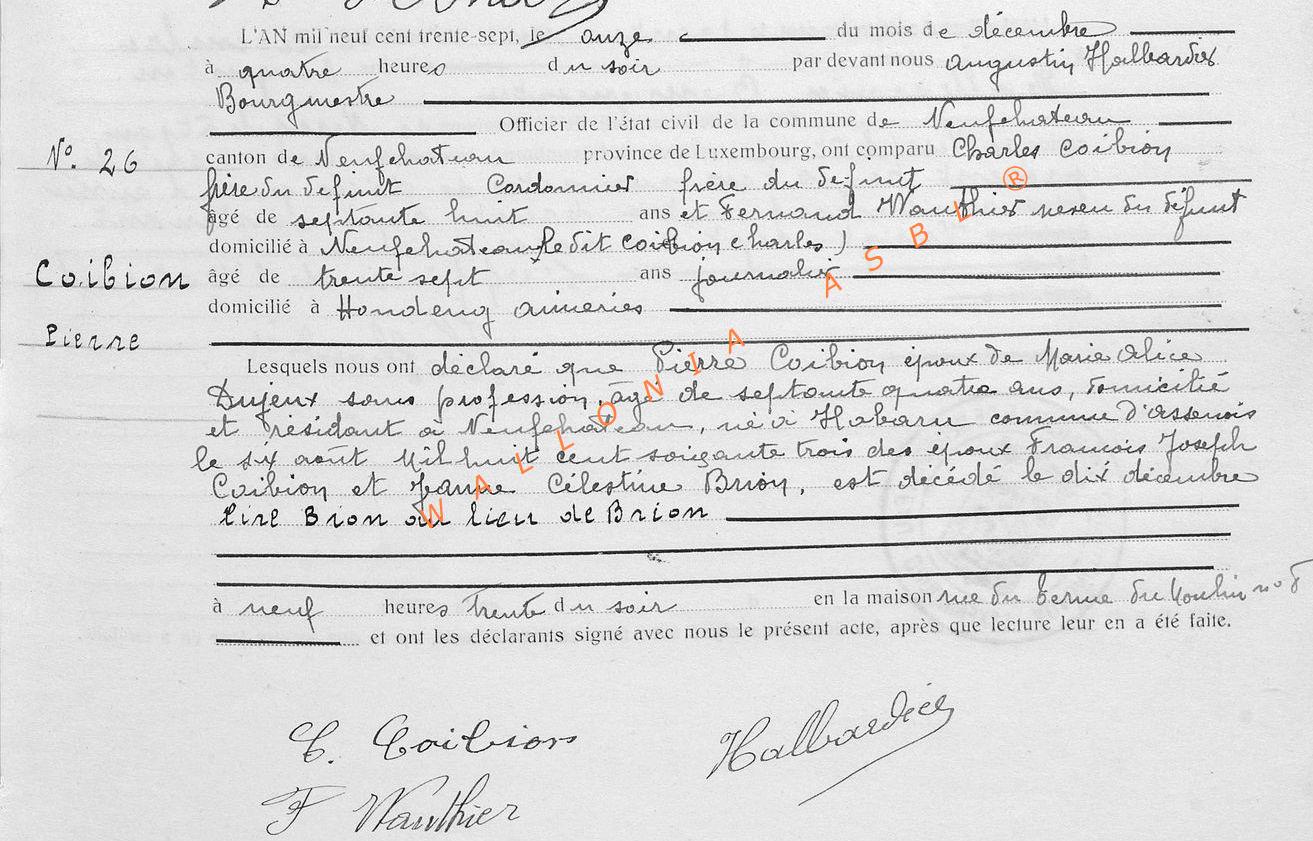 L'AN mil neuf cent trente-sept, le onze du mois de décembre
à quatre heures du soir par devant nous Augustin Halbardier
Bourgmestre
Officier de l'état civil de la commune de Neufchateau
N°. 26
canton de Neufchateau province de Luxembourg, ont comparu Charles Coibion
frère du defunt Cordonnier frère du defunt
âgé de septante huit ans et Fernand Wauthier neveu du défunt
domicilié à Neufchateau (le dit Coibion Charles)
Coibion
âgé de trente sept ans journalier
domicilié à Houdeng aimeries
Pierre
Lesquels nous ont déclaré que Pierre Coibion époux de Marie Alice
Dujeux sans profession, âgé de septante quatre ans, domicilié
et résidant à Neufchateau, né à Habaru commune d'assenois
le six août Mil huit cent soixante trois des époux Francois Joseph
Coibion et Jeanne Célestine Brion, est décédé le dix décembre
lire Brion au lieu de Brion
à neuf heures trente du soir en la maison rue du Terme du Moulin n°
et ont les déclarants signé avec nous le présent acte, après que lecture leur en a été faite.
C. Coibion
Halbardier
F Wauthier
WALLONIA ASBL ®